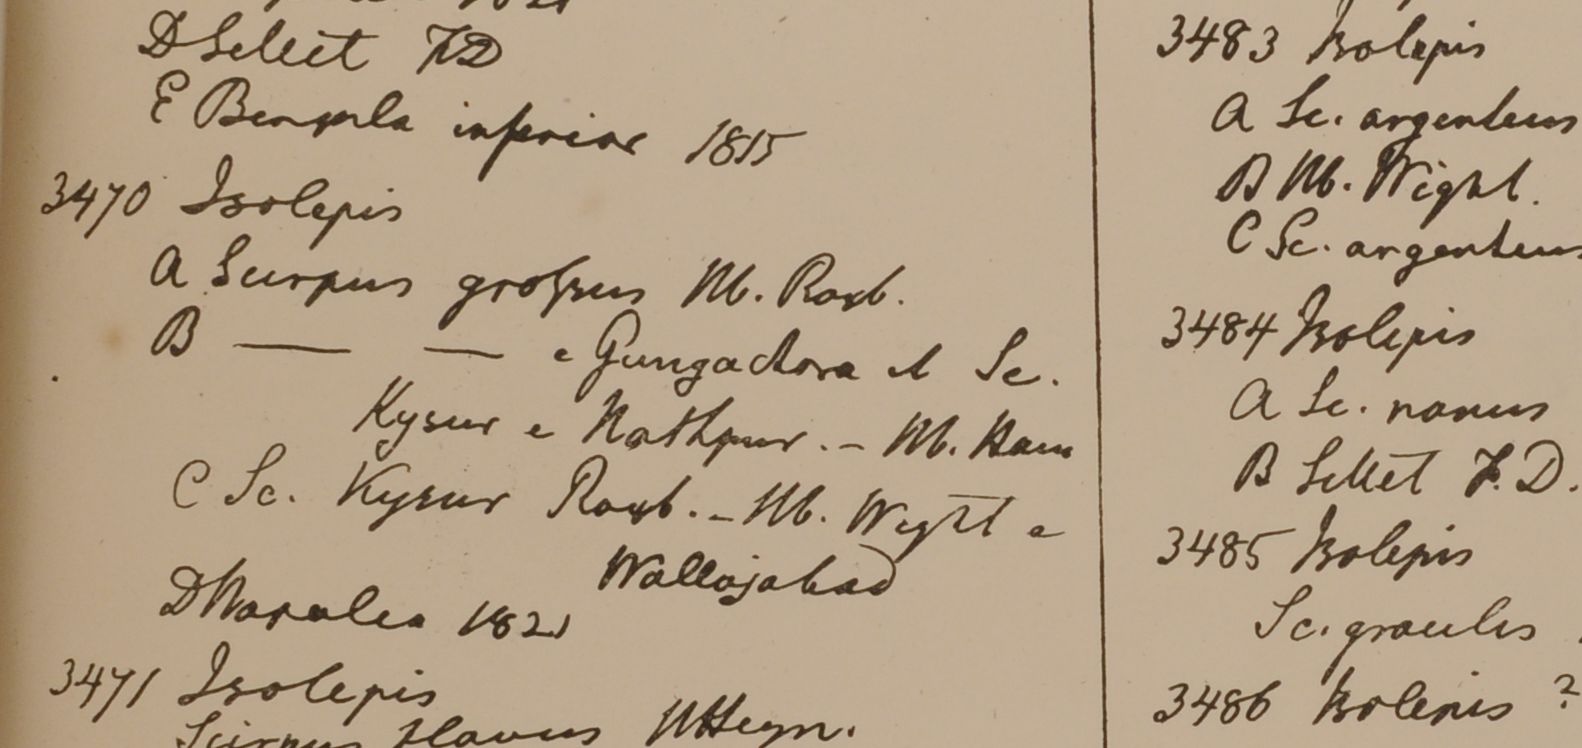 1821
D Sellet FD
E Bengala inferior 1815
3470 Isolepis
A Scirpus grossus Hb. Roxb.
B — — e Gungachora et Sc.
Kysur e Nathpur. – Hb. Ham
C Sc. Kysur Roxb. – Hb. Wight e
Wallajabad
D Napalea 1821
3471 Isolepis
Scirpus flavus HHeyn.
3483 Isolepis
A Sc. argenteus
B Hb. Wight.
C Sc. argenteus
3484 Isolepis
A Sc. nanus
B Sillet F.D.
3485 Isolepis
Sc. gracilis
3486 Isolepis ?